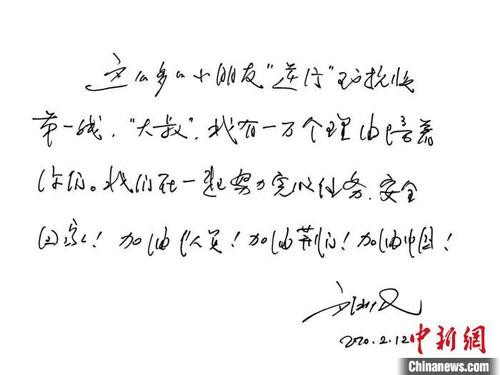 这么多的小朋友"逆行"到抗疫
第一线,"大叔",我有一万个理由陪着
你们。我们在一起努力完成任务、安全
回家!加油队员!加油荆门!加油中国!
2020.2.12
中新網
Chinanews.com